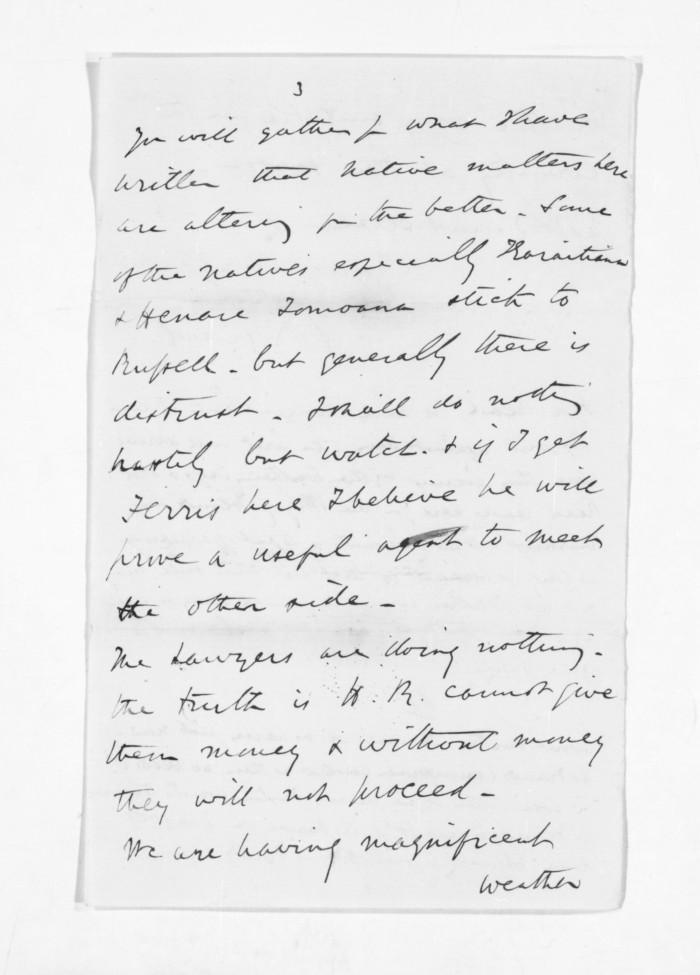 3
You will gather fr what I have
written that native matters here
are altering for the better - Some
of the natives especially Karaitiana
& Henare Tomoana stick to
Russell - but generally there is
distrust - I shall do nothing
hastily but watch. & if I get
Ferris here I believe he will
prove a useful agent to meet
the other side -
The Lawyers are doing nothing -
the truth is H. R. cannot give
them money & without money
they will not proceed -
We are having magnificent
weather